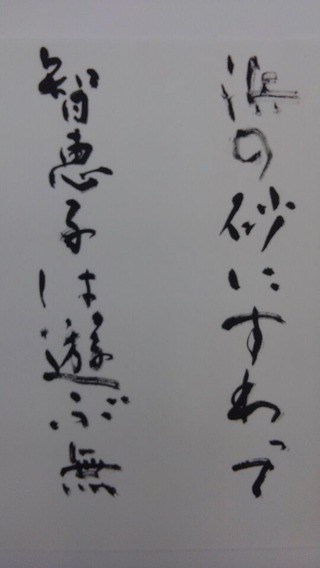 浜の砂にすわって
智恵子は遊ぶ無